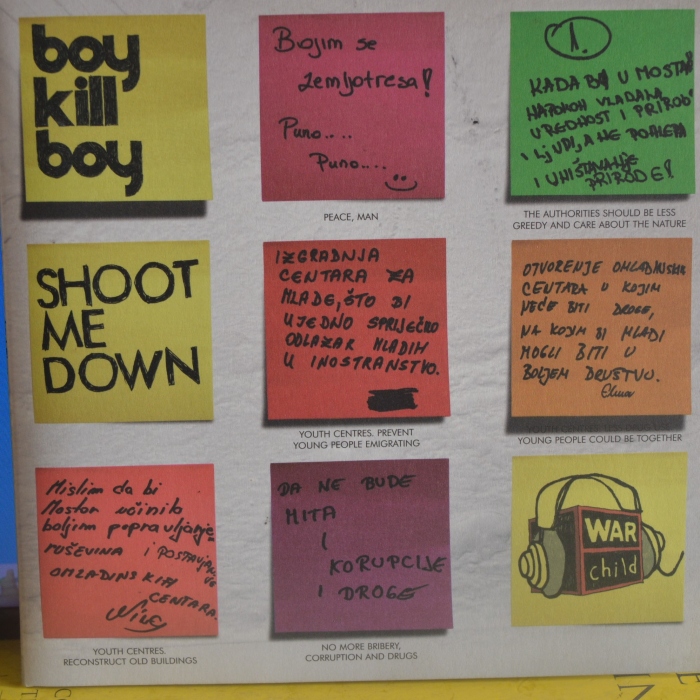 boy
kill
boy
Bojim se
zemljotresa!
Puno....
Puno....
PEACE, MAN
1.
KADA BI U MOSTAR
VLADALA
VREDNOST I PRIROD
I LJUDI, A NE POHLEPA
I UNIŠTAVANJE
PRIRODE!
THE AUTHORITIES SHOULD BE LESS
GREEDY AND CARE ABOUT THE NATURE
SHOOT
ME
DOWN
IZGRADNJA
CENTARA ZA
MLADE, ŠTO BI
UJEDNO SPRIJEČIO
ODLAZAK MLADIH
U INOSTRANSTVO.
YOUTH CENTRES. PREVENT
YOUNG PEOPLE EMIGRATING
OTVORENJE OMLADINSKIH
CENTARA U KOJIM
NEĆE BITI DROGE,
NA KOJIM BI MLADI
MOGLI BITI U
BOLJEM DRUŠTVU.
Elma
YOUNG PEOPLE COULD BE TOGETHER
Mislim da bi
Mostar učinilo
boljim popravljanje
RUŠEVINA I POSTAVLJANJE
OMLADINSKIH
CENTARA.
YOUTH CENTRES.
RECONSTRUCT OLD BUILDINGS
DA NE BUDE
MITA
I
KORUPCIJE
I DROGE
NO MORE BRIBERY,
CORRUPTION AND DRUGS
WAR
child